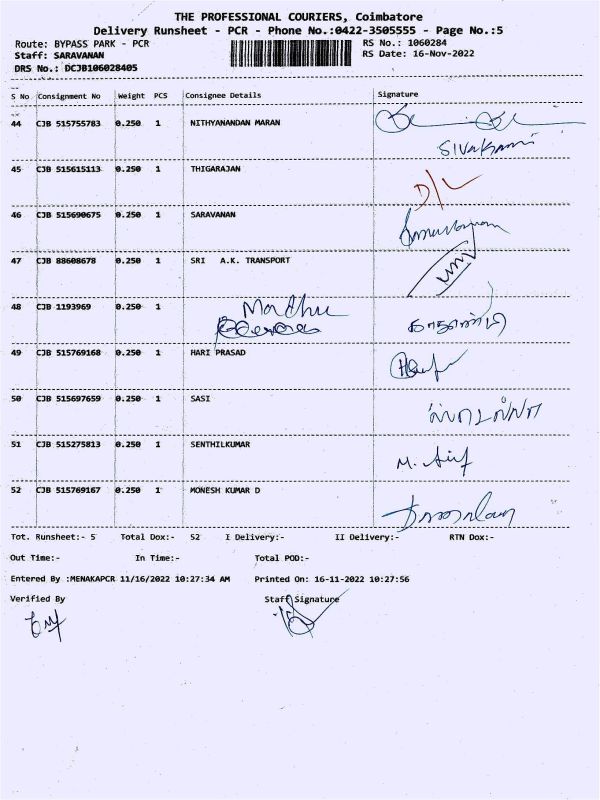 THE PROFESSIONAL COURIERS, Coimbatore
Delivery Runsheet - PCR - Phone No.:0422-3505555 - Page No.:5
Route: BYPASS PARK - PCR RS No.: 1060284
Staff: SARAVANAN RS Date: 16-Nov-2022
DRS No.: DCJB106028405
S No Consignment No Weight PCS Consignee Details Signature
44 CJB 515755783 0.250 1 NITHYANANDAN MARAN
Sivakami
45 CJB 515615113 0.250 1 THIGARAJAN D/L
46 CJB 515690675 0.250 1 SARAVANAN
47 CJB 88608678 0.250 1 SRI A.K. TRANSPORT
48 CJB 1193969 0.250 1 Madhu
49 CJB 515769168 0.250 1 HARI PRASAD
50 CJB 515697659 0.250 1 SASI
51 CJB 515275813 0.250 1 SENTHILKUMAR
52 CJB 515769167 0.250 1 MONESH KUMAR D
Tot. Runsheet:- 5 Total Dox:- 52 I Delivery:- II Delivery:- RTN Dox:-
Out Time:- In Time:- Total POD:-
Entered By :MENAKAPCR 11/16/2022 10:27:34 AM Printed On: 16-11-2022 10:27:56
Verified By Staff Signature